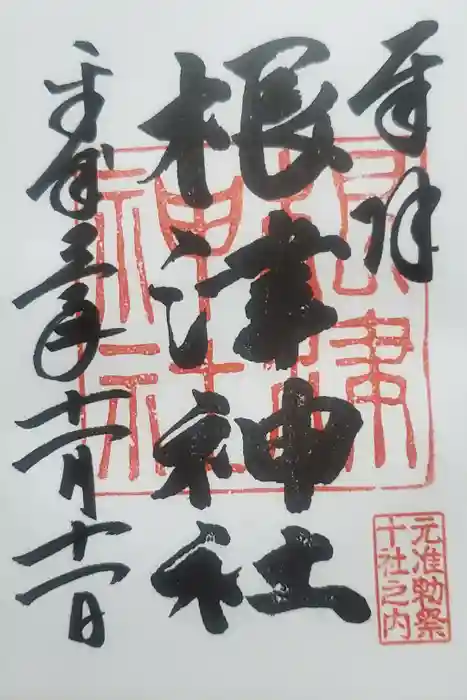 奉拝
根津神社
根津
神社
元准勅祭
十社之内
令和三年十一月十一日